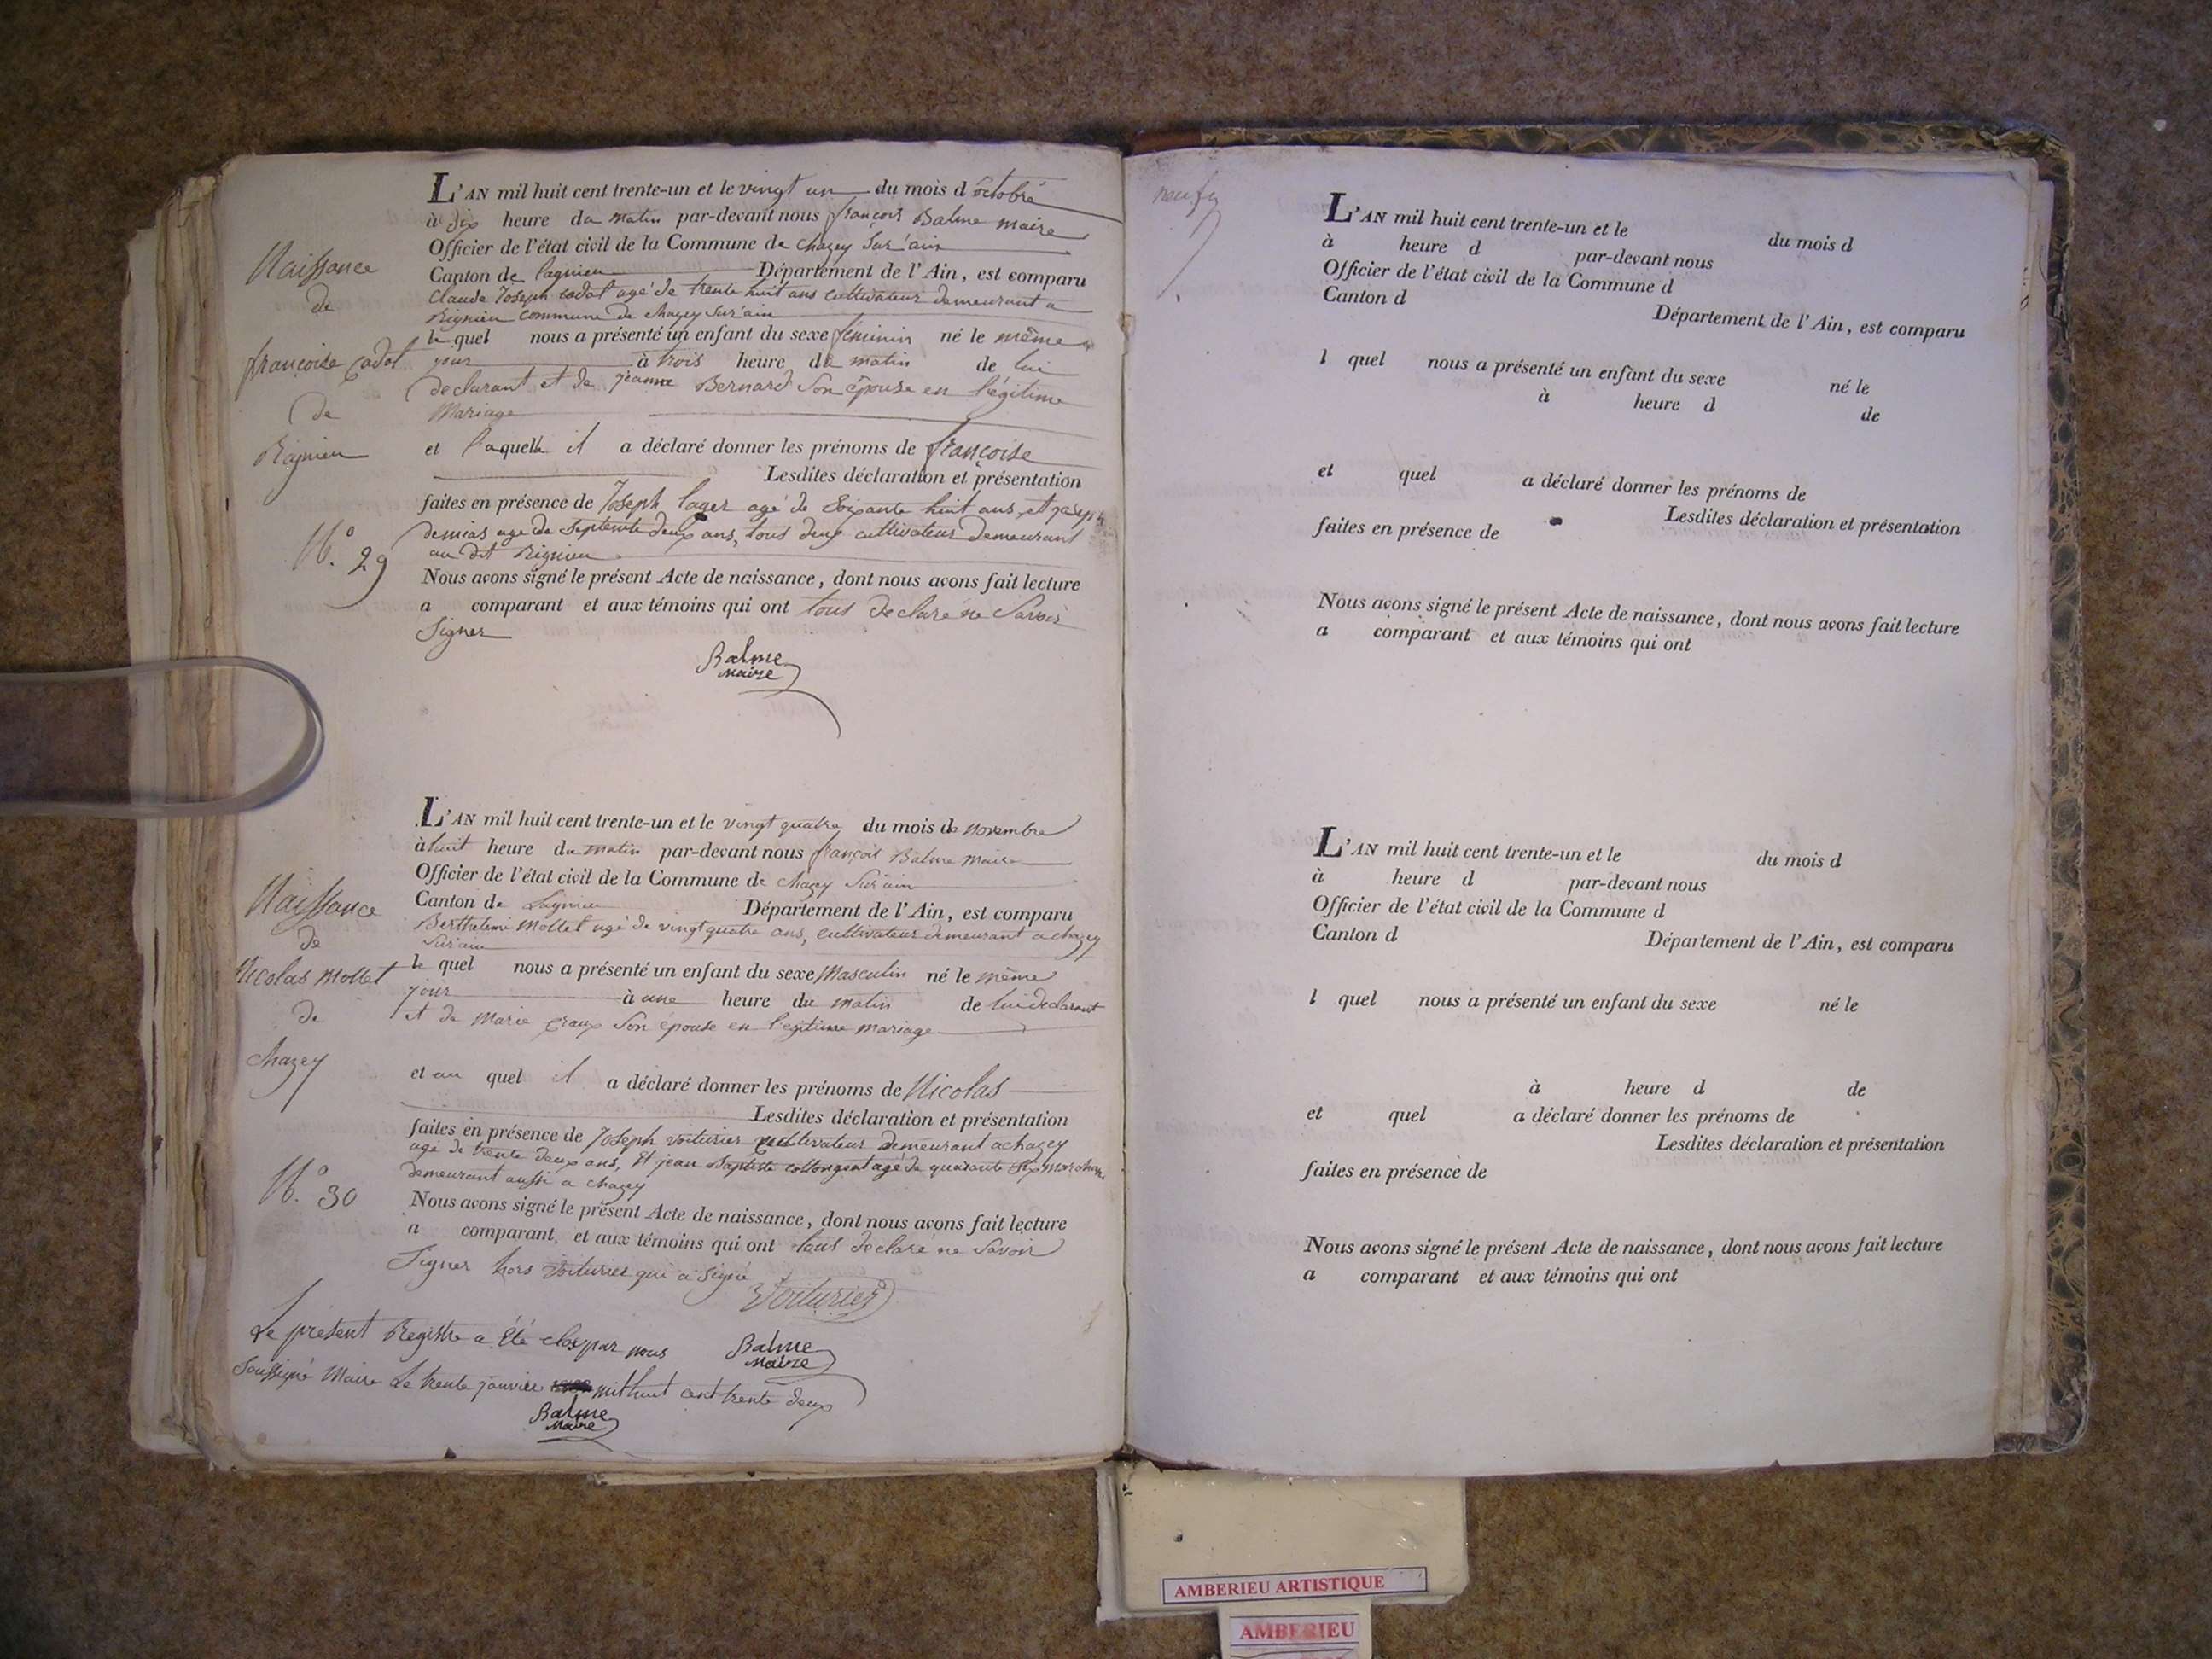 L'AN mil huit cent trente-un et le vingt un du mois d'octobre
à dix heure du matin par-devant nous françois Balme maire
Officier de l'état civil de la Commune de chazey Sur ain
Canton de lagnieu Département de l'Ain, est comparu
Claude Joseph cadot agé de trente huit ans cultivateur demeurant a
Rignieu commune de chazey Sur ain
le quel nous a présenté un enfant du sexe féminin né le même
jour à trois heure du matin de lui
declarant et de jeanne Bernard Son épouse en légitime
Mariage
et laquelle il a déclaré donner les prénoms de françoise
Lesdites déclaration et présentation
faites en présence de Joseph agé de Soixante huit ans, et
agé de Septente deux ans, tous deux cultivateur Demeurant
au dit Rignieu
Nous avons signé le présent Acte de naissance, dont nous avons fait lecture
a comparant et aux témoins qui ont tous declaré ne Savoir
Signer
Balme
maire
Naissance
de
françoise Cadot
de
Rignieu
N.° 29
L'AN mil huit cent trente-un et le vingt quatre du mois de novembre
à huit heure du matin par-devant nous françois Balme maire
Officier de l'état civil de la Commune de chazey Sur ain
Canton de Lagnieu Département de l'Ain, est comparu
Berthelemi Mollet agé de vingt quatre ans, cultivateur demeurant a chazey
Sur ain
le quel nous a présenté un enfant du sexe Masculin né le même
jour à une heure du matin de lui declarant
et de Marie Son épouse en legitime mariage
et au quel il a déclaré donner les prénoms de Nicolas
Lesdites déclaration et présentation
faites en présence de Joseph voiturier cultivateur demeurant a chazey
agé de trente deux ans, et jean Baptiste collongeat agé de quarante six
demeurant aussi a chazey
Nous avons signé le présent Acte de naissance, dont nous avons fait lecture
a comparant, et aux témoins qui ont tous declaré ne Savoir
Signer hors voiturier qui a signé
Voiturier
Naissance
de
Nicolas Mollet
de
Chazey
N.° 30
Le présent Registre a été clos par nous
Soussigné Maire Le trente janvier mil huit cent trente deux
Balme
Maire
Balme
Maire
L'AN mil huit cent trente-un et le du mois d
à heure d par-devant nous
Officier de l'état civil de la Commune d
Canton d Département de l'Ain, est comparu
l quel nous a présenté un enfant du sexe né le
à heure d de
et quel a déclaré donner les prénoms de
Lesdites déclaration et présentation
faites en présence de
Nous avons signé le présent Acte de naissance, dont nous avons fait lecture
a comparant et aux témoins qui ont
L'AN mil huit cent trente-un et le du mois d
à heure d par-devant nous
Officier de l'état civil de la Commune d
Canton d Département de l'Ain, est comparu
l quel nous a présenté un enfant du sexe né le
à heure d de
et quel a déclaré donner les prénoms de
Lesdites déclaration et présentation
faites en présence de
Nous avons signé le présent Acte de naissance, dont nous avons fait lecture
a comparant et aux témoins qui ont
AMBERIEU ARTISTIQUE
AMBERIEU